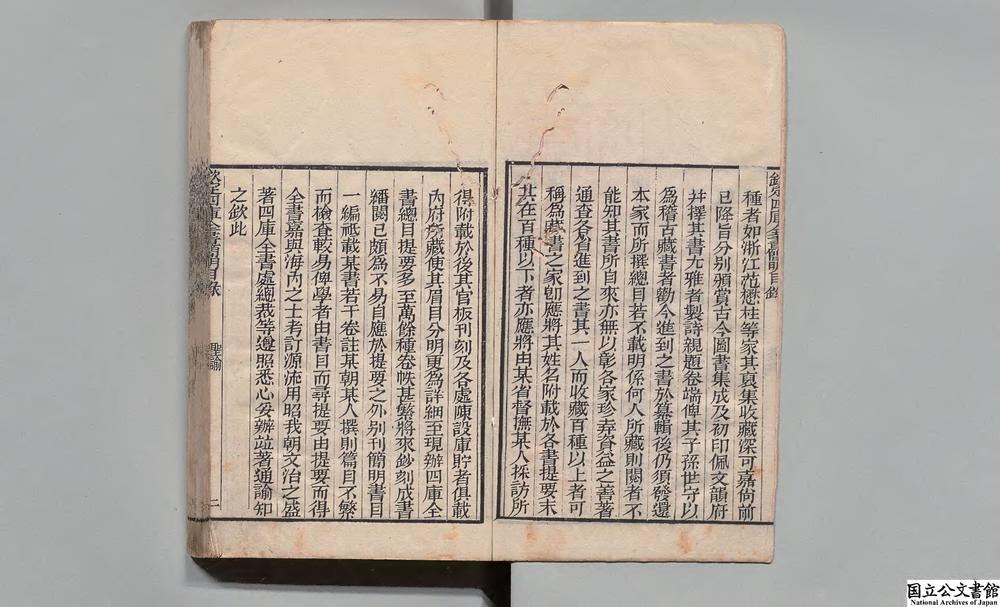 欽定四庫全書簡明目錄
種者如浙江范懋柱等家其裒集收藏深可嘉尚前
已降旨分別頒賞古今圖書集成及初印佩文韻府
并擇其書尤雅者製詩親題卷端俾其子孫世守以
為稽古藏書者勸今進到之書於纂輯後仍須發還
本家而所撰總目若不載明係何人所藏則閱者不
能知其書所自來亦無以彰各家珍弆資益之善著
通查各省進到之書其一人而收藏百種以上者可
稱為藏書之家即應將其姓名附載於各書提要末
其在百種以下者亦應將由某省督撫某人採訪所
得附載於後其官板刊刻及各處陳設庫貯者俱載
內府所藏使其眉目分明更為詳細至現辦四庫全
書總目提要多至萬餘種卷帙甚繁將來鈔刻成書
繙閱已頗為不易自應於提要之外別刊簡明書目
一編祗載某書若干卷註某朝某人撰則篇目不繁
而檢查較易俾學者由書目而尋提要由提要而得
全書嘉與海內之士考訂源流用昭我朝文治之盛
著四庫全書處總裁等遵照悉心妥辦並著通諭知
之欽此
欽定四庫全書簡明目錄
聖諭
二
国立公文書館
National Archives of Japan